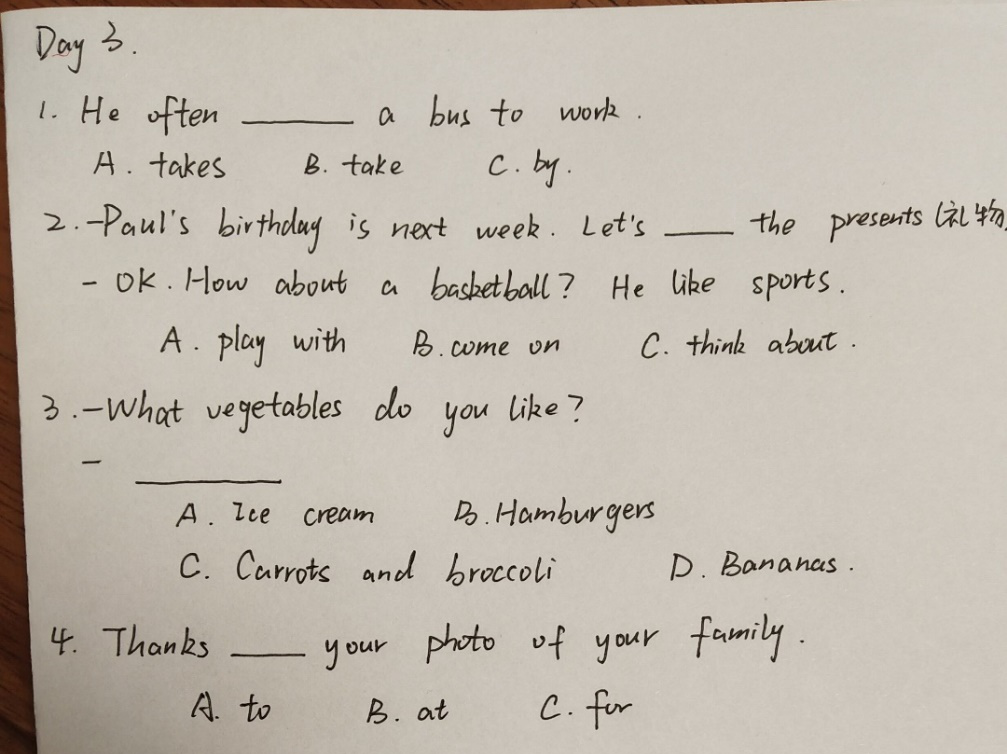 Day 3.
1. He often ______ a bus to work.
A. takes B. take C. by.
2. -Paul's birthday is next week. Let's ____ the presents (礼物)
- OK. How about a basketball? He like sports.
A. play with B. come on C. think about.
3. -What vegetables do you like?
- ________
A. Ice cream B. Hamburgers
C. Carrots and broccoli D. Bananas.
4. Thanks ____ your photo of your family.
A. to B. at C. for